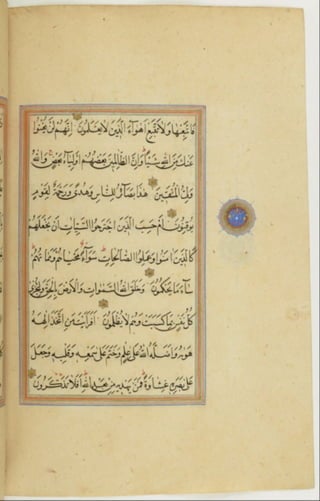 فَاتَّبِعْهَا وَلَا تَتَّبِعْ أَهْوَاءَ الَّذِينَ لَا يَعْلَمُونَ إِنَّهُمْ لَنْ يُغْنُوا
عَنْكَ مِنَ اللَّهِ شَيْئًا وَإِنَّ الظَّالِمِينَ بَعْضُهُمْ أَوْلِيَاءُ بَعْضٍ وَاللَّهُ
وَلِيُّ الْمُتَّقِينَ هَذَا بَصَائِرُ لِلنَّاسِ وَهُدًى وَرَحْمَةٌ لِقَوْمٍ
يُوقِنُونَ أَمْ حَسِبَ الَّذِينَ اجْتَرَحُوا السَّيِّئَاتِ أَنْ نَجْعَلَهُمْ
كَالَّذِينَ آمَنُوا وَعَمِلُوا الصَّالِحَاتِ سَوَاءً مَحْيَاهُمْ وَمَمَاتُهُمْ
سَاءَ مَا يَحْكُمُونَ وَخَلَقَ اللَّهُ السَّمٰوَاتِ وَالْأَرْضَ بِالْحَقِّ وَلِتُجْزَى
كُلُّ نَفْسٍ بِمَا كَسَبَتْ وَهُمْ لَا يُظْلَمُونَ أَفَرَأَيْتَ مَنِ اتَّخَذَ إِلَهَهُ
هَوٰيهُ وَأَضَلَّهُ اللَّهُ عَلَى عِلْمٍ وَخَتَمَ عَلَى سَمْعِهِ وَقَلْبِهِ وَجَعَلَ
عَلَى بَصَرِهِ غِشَاوَةً فَمَنْ يَهْدِيهِ مِنْ بَعْدِ اللَّهِ أَفَلَا تَذَكَّرُونَ